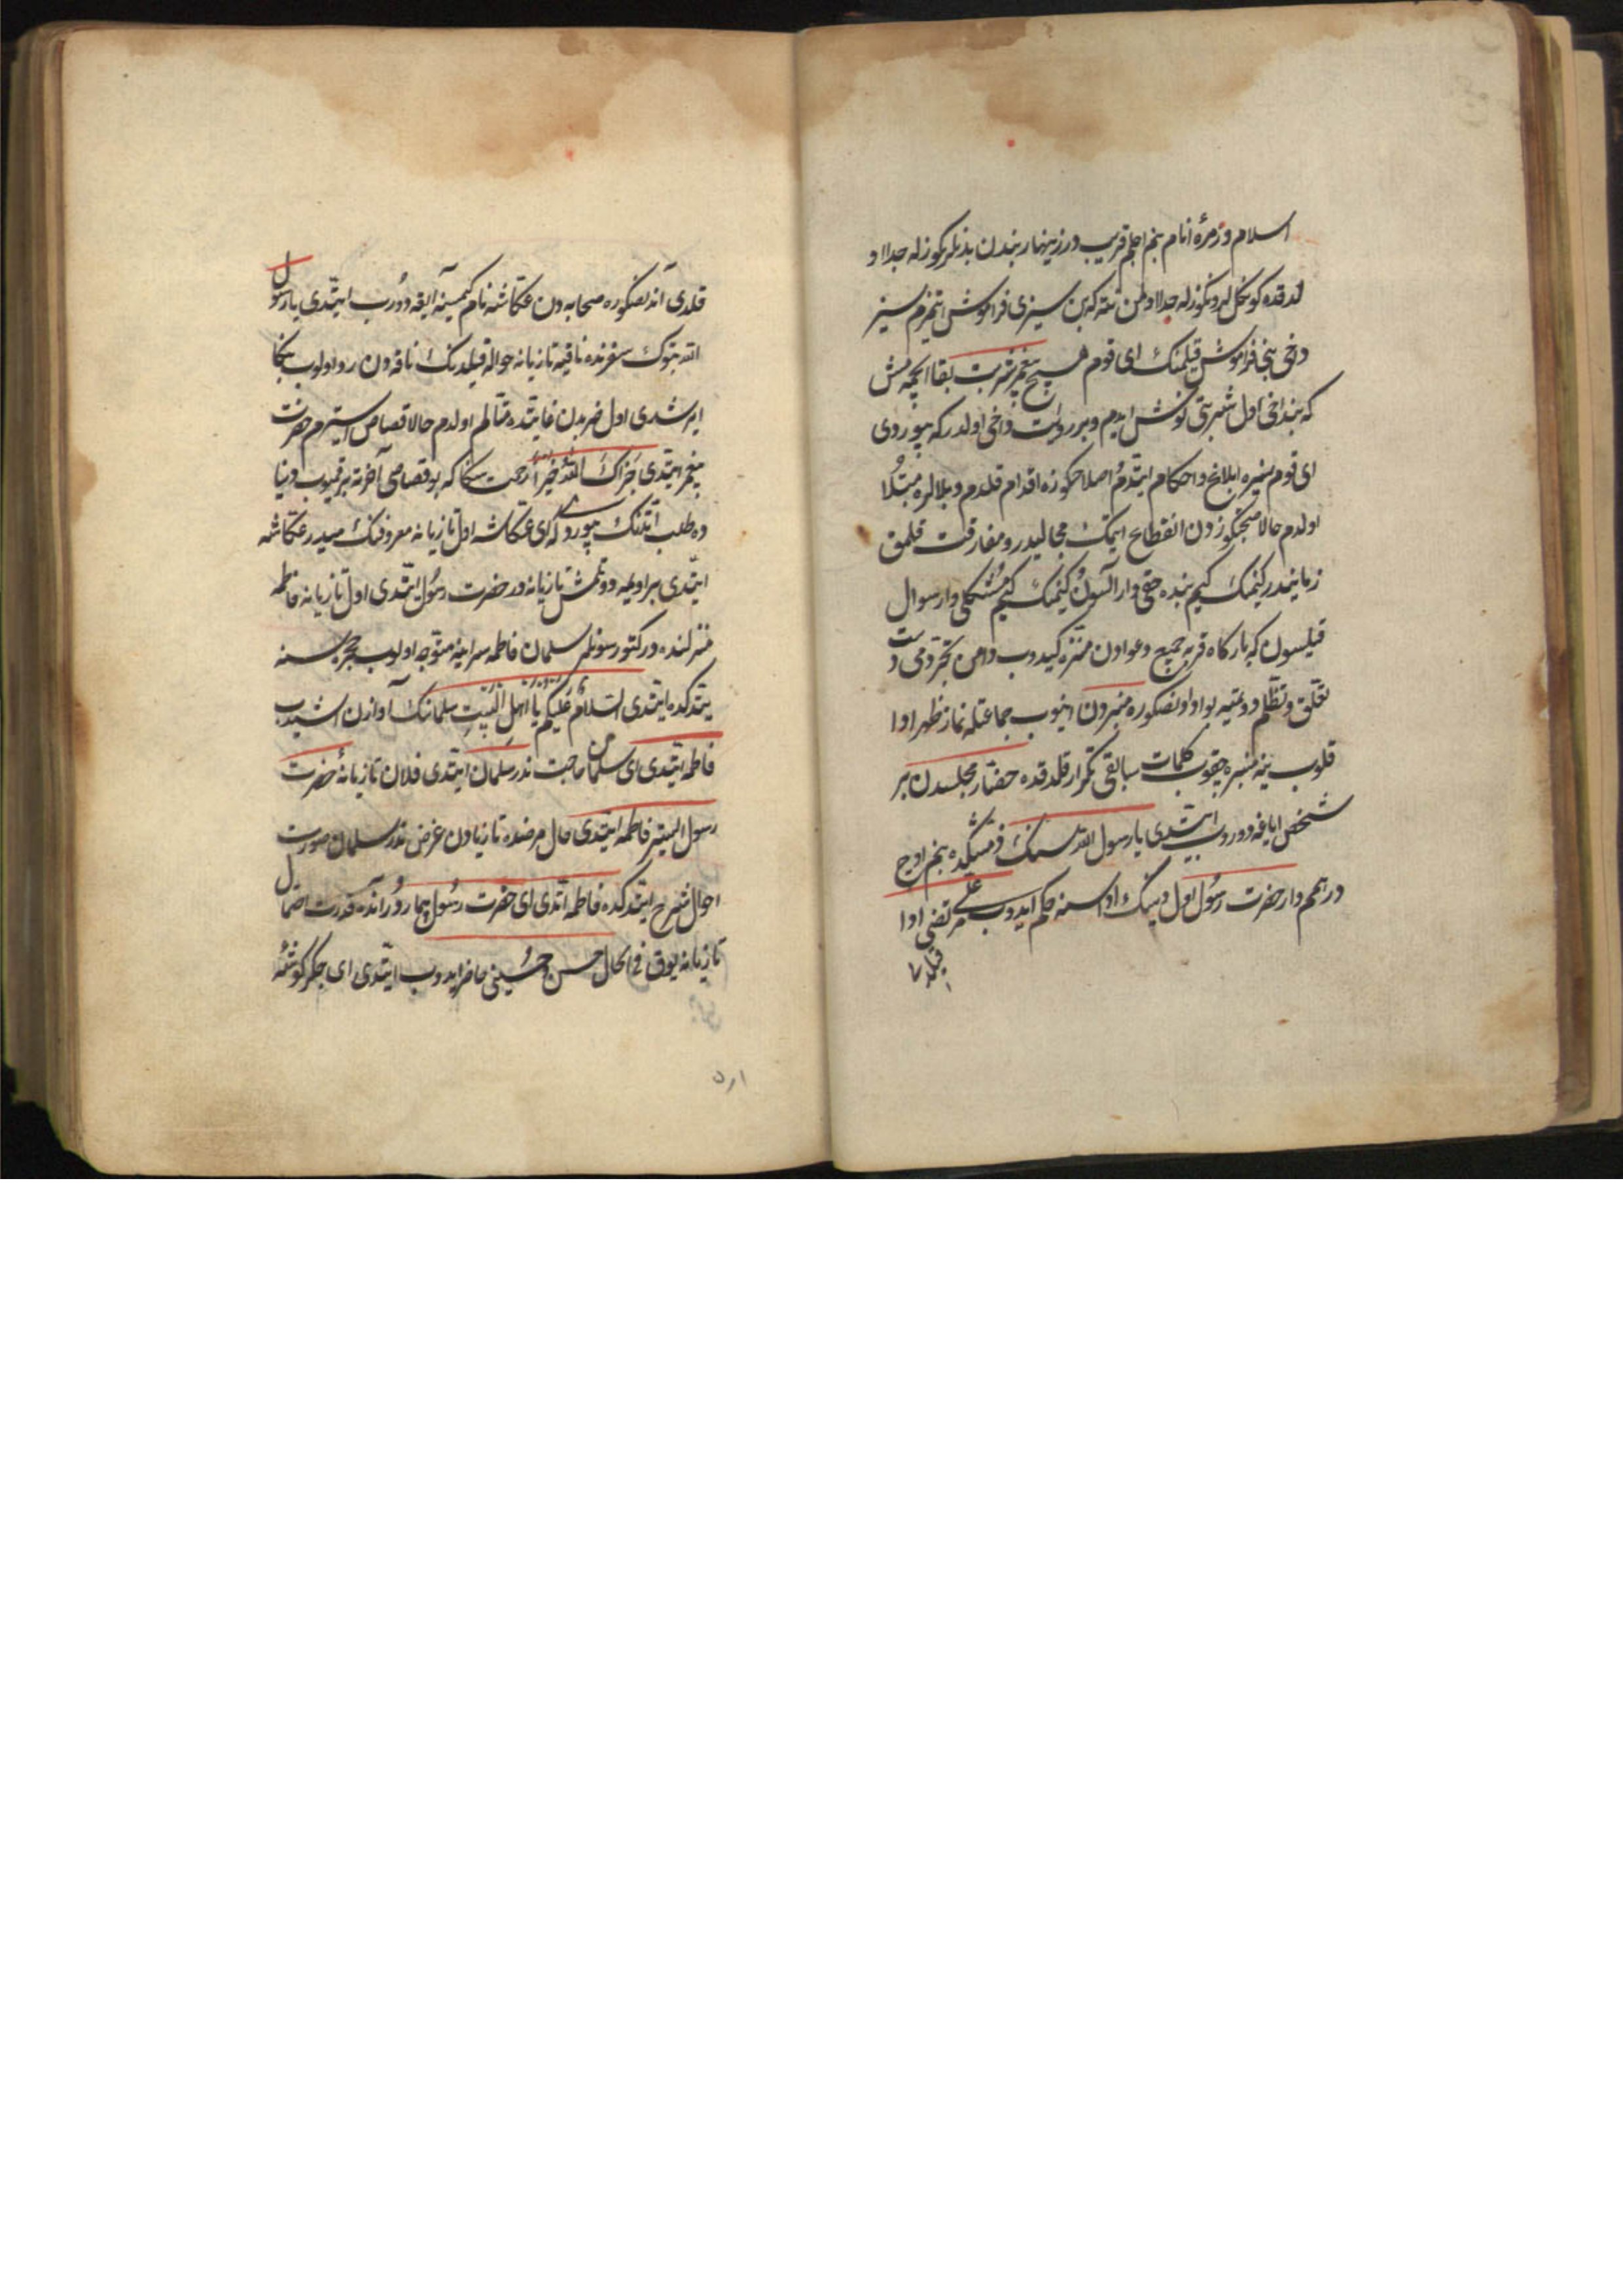 اسلام و زمرهٔ انام بنم اجلم قریب در زینهار بندن بدنلرکوزله جدا او
لدقده کوکللروکوزله جدا اولمن نته که بن سیزی فراموش اتمزم سیز
داخی بنی فراموش قیلمنک ای قوم هیچ پیغمبر شربت بقا ایچمه مش
که بنداخی اول شربتی نوش ایدم و بر روایت داخی اولدر که بیوردی
ای قوم سیزه ابلاغ و احکام ایتدم اصلاحکوزه اقدام قلدم و بلالره مبتلا
اولدم حالا صحبتکوزدن انقطاع ایتمک محالیدر و مفارقت قلمق
زمانیدر کیمنک کیم بنده حقی وار آلسون و کیمنک کیم مشکلی وار سوال
قیلسون که بارکاه قربه جمیع دعوادن منزه کیدوب دامن تجردمی دست
تعلق و تظلم دوتمیه بو ادا اولنصکوره منبردن اینوب جماعتله نماز ظهر ادا
قلوب ینه منبره چقوب کلمات سابقی تکرار قلدقده حضار مجلسدن بر
شخص ایاغه دوروب ایتدی یا رسول الله سنک ذمتکده بنم اوچ
درهمم وار حضرت رسول اول دینک اداسنه حکم ایدوب علی مرتضی ادا
قیلدی
قلدی آندنصکوره صحابه دن عکاشه نام کیمسنه آیغه دوروب ایتدی یا رسول
الله تبوک سفرنده ناقیه تازیانه حواله قیلدنک ناقه دن رد اولوب بکا
ایرشدی اول ضربدن غایتده متألم اولدم حالا قصاص استرم حضرت
پیغمبر ایتدی جزاک الله خیرا رحمت سکا که بو قصاصی آخرته برقمیوب دنیا
ده طلب اتدنک بیوردی که ای عکاشه اول تازیانه معروفنک میدر عکاشه
ایتدی بر اولمه دوتلمش تازیانه در حضرت رسول ایتدی اول تازیانه فاطمه
منزلنده در کتورسونلر سلمان فاطمه سراینه متوجه اولوب حجره سنه
یتدکده ایتدی السلام علیکم یا اهل البیت سلماننک آوازن اشیدوب
فاطمه ایتدی ای سلمان حاجت ندر سلمان ایتدی فلان تازیانهٔ حضرت
رسول ایستر فاطمه ایتدی حال مرضده تازیانه دن غرض ندر سلمان صورت
احوال شرح ایتدکده فاطمه اتدی ای حضرت رسول بیماردور آنده قدرت احتمال
تازیانه یوق فی الحال حسن و حسینی حاضر ایدوب ایتدی ای جکر کوشهٔ